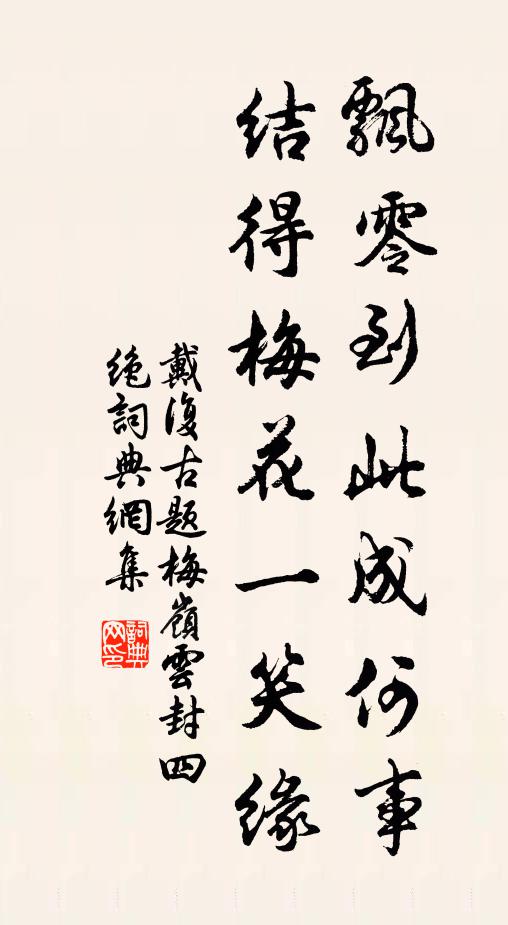 飄零到此成何事
結得梅花一笑緣
戴復古題梅嶺雲封四
絶詞典網集
詞典
网印